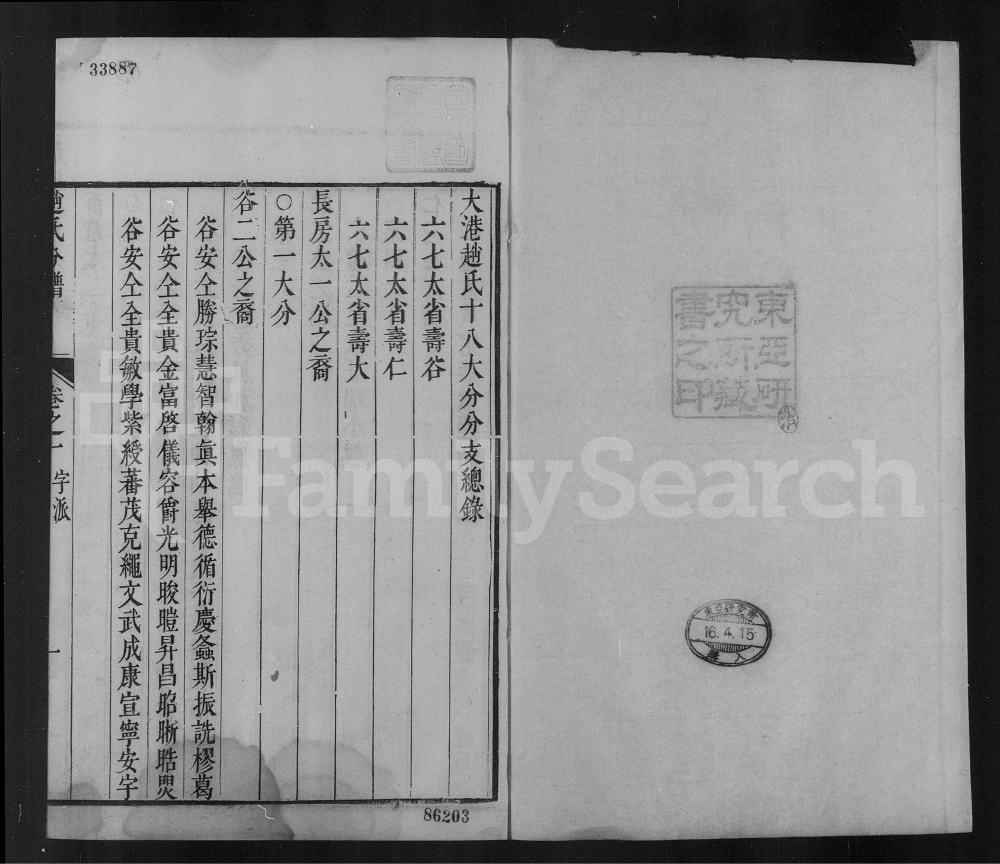 東亞研
究所藏
書之印
東亞研究所
16.4.15
購入
33887
大港趙氏十八大分分支總錄
六七太省壽谷
六七太省壽仁
六七太省壽大
長房太一公之裔
○第一大分
谷二公之裔
谷安仝勝琮慧智翰眞本舉德循衍慶螽斯振詵樛葛
谷安仝全貴金富啓儀容爵光明晙暟昇昌昭晣晧煛
谷安仝全貴敏學紫綬蕃茂克繩文武成康宣寧安宇
趙氏分譜
卷之一 字派
一
86203
FamilySearch